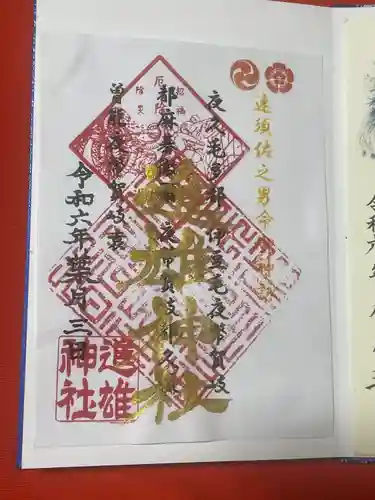 速須佐之男命御神詠
夜久毛多都 伊豆毛夜幣賀岐
都麻碁微爾 夜幣賀岐都久流
曾能夜幣賀岐袁
進雄神社
令和六年葉月三日
進雄
神社
招福
厄除
除災